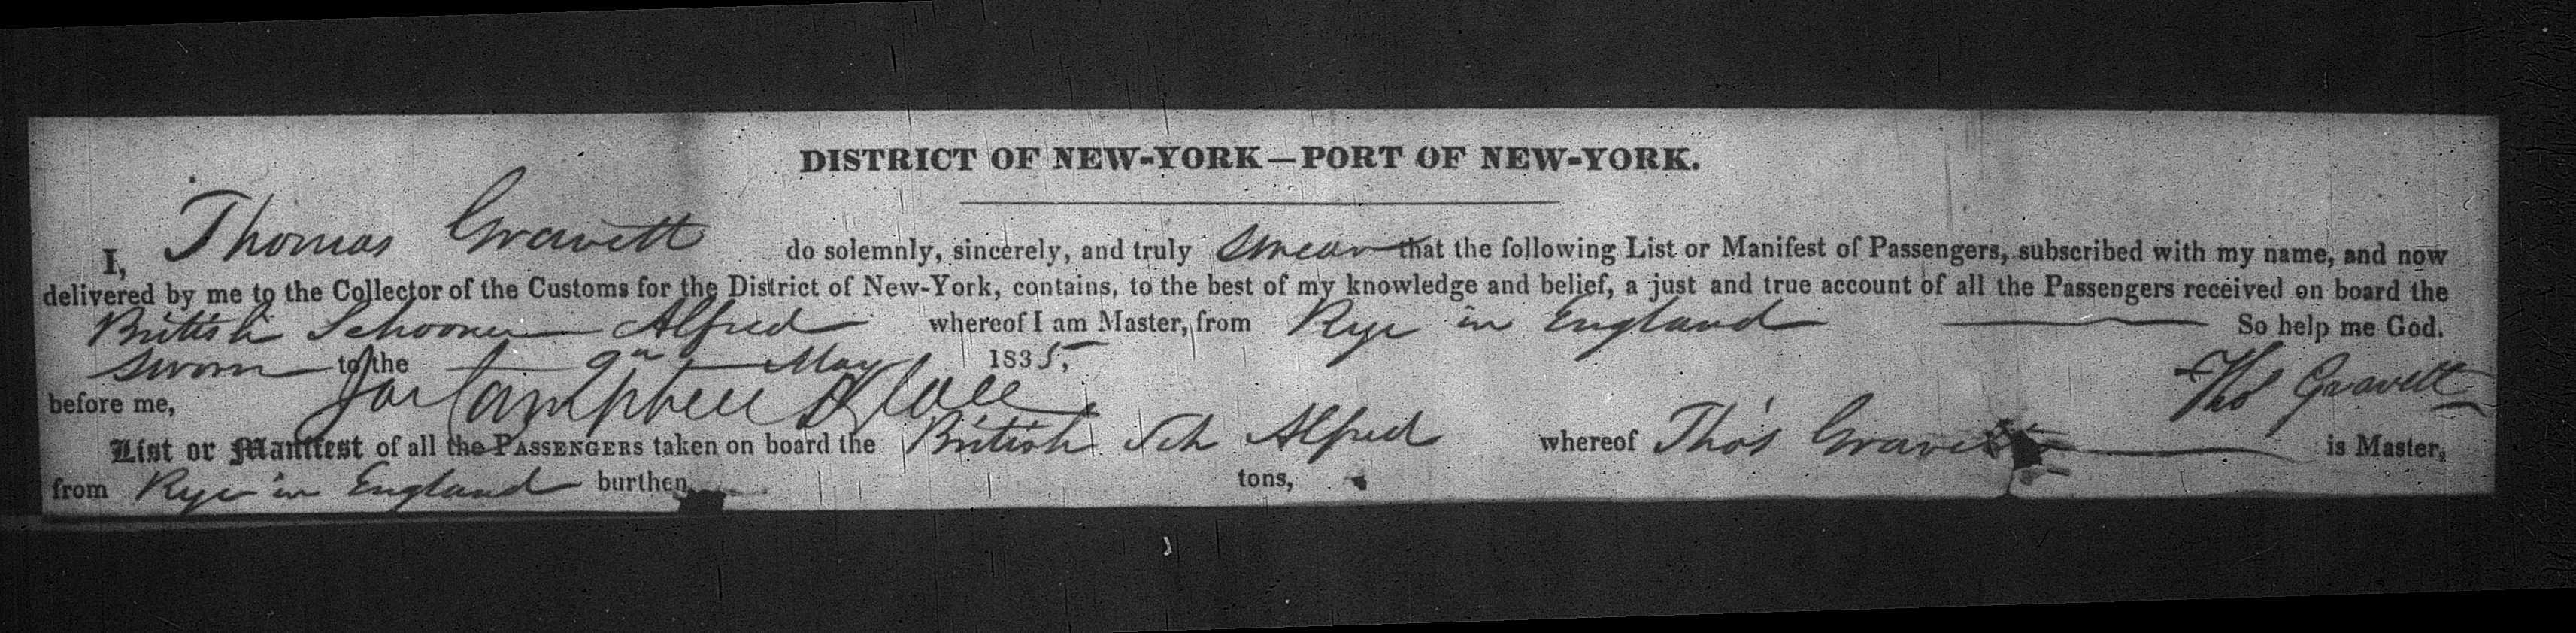 DISTRICT OF NEW-YORK—PORT OF NEW-YORK.
I, Thomas Gravett do solemnly, sincerely, and truly swear that the following List or Manifest of Passengers, subscribed with my name, and now
delivered by me to the Collector of the Customs for the District of New-York, contains, to the best of my knowledge and belief, a just and true account of all the Passengers received on board the
British Schooner Alfred whereof I am Master, from Rye in England So help me God.
Sworn to the 9th May 1835,
before me, Campbell Thos Gravett
List or Manifest of all the PASSENGERS taken on board the British Sch Alfred whereof Thos Gravett is Master,
from Rye in England burthen tons,